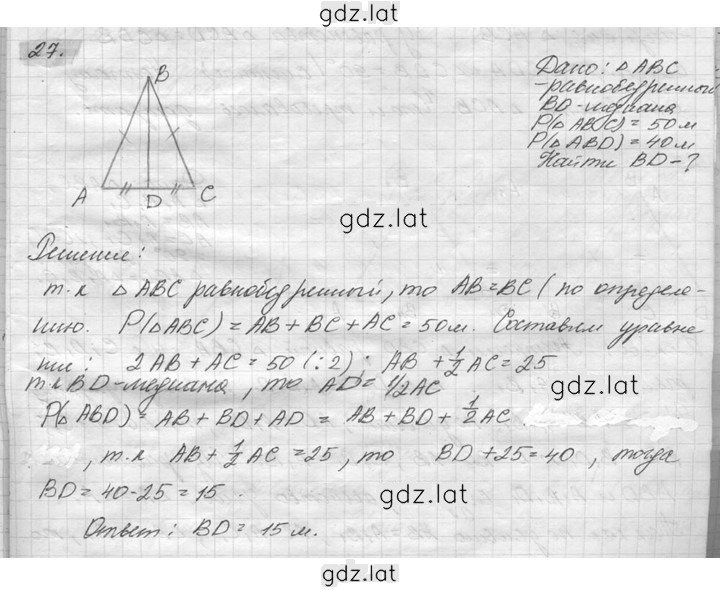 gdz.lat
27.
B
A
D
C
Дано: △ABC
-равнобедренный
BD-медиана
P(△ABC)=50м
P(△ABD)=40м
Найти BD-?
gdz.lat
Решение:
т.к △ABC равнобедренный, то AB=BC (по определе-
нию. P(△ABC)=AB+BC+AC=50м. Составим уравне
ние: 2AB+AC=50 (:2); AB+½AC=25
т.к BD-медиана, то AD=½AC
P(△ABD)=AB+BD+AD=AB+BD+½AC
, т.к AB+½AC=25, то BD+25=40, тогда
BD=40-25=15.
gdz.lat
Ответ: BD=15м.
gdz.lat